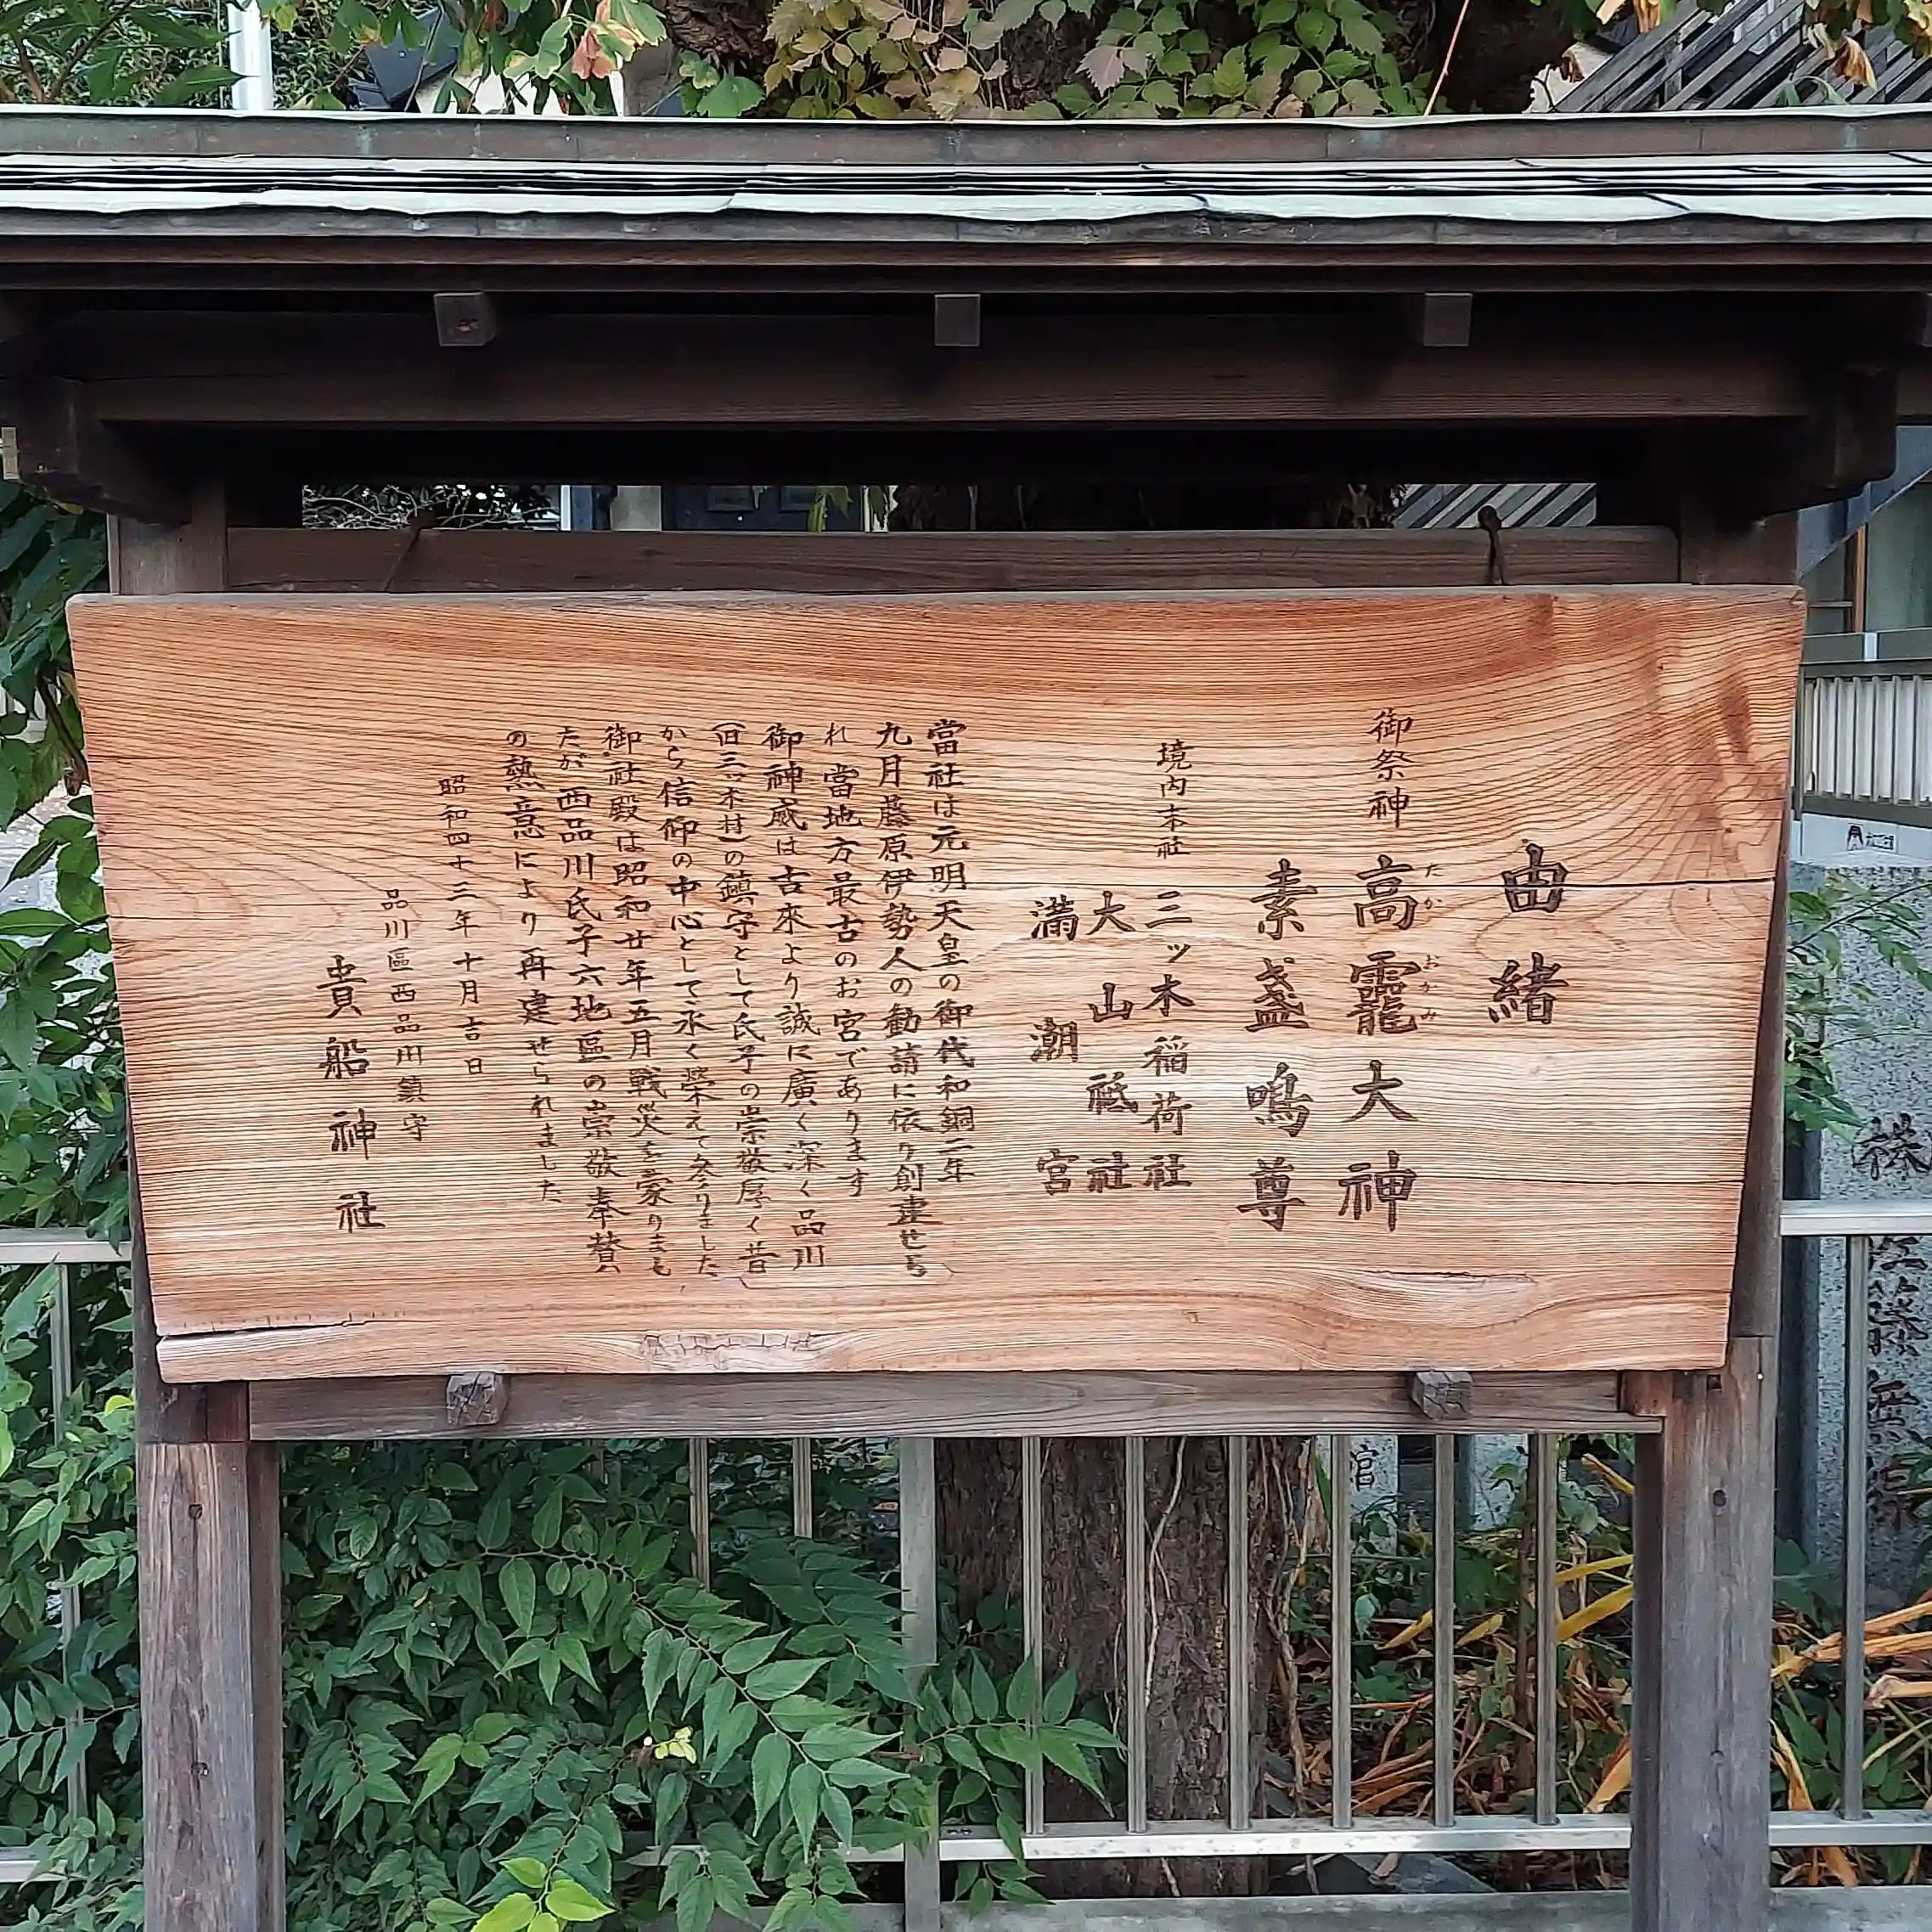 由緒
御祭神 高龗大神
たか おかみ
素盞鳴尊
境内末社 三ッ木稲荷社
大山祗社
満潮宮
當社は元明天皇の御代和銅二年
九月藤原伊勢人の勧請に依り創建せら
れ當地方最古のお宮であります
御神威は古來より誠に廣く深く品川
(旧三ッ木村)の鎮守として氏子の崇敬厚く昔
から信仰の中心として永く栄えて参りました
御社殿は昭和廿年五月戦災を蒙りまし
たが西品川氏子六地區の崇敬奉賛
の熱意により再建せられました
昭和四十三年十月吉日
品川區西品川鎮守
貴船神社